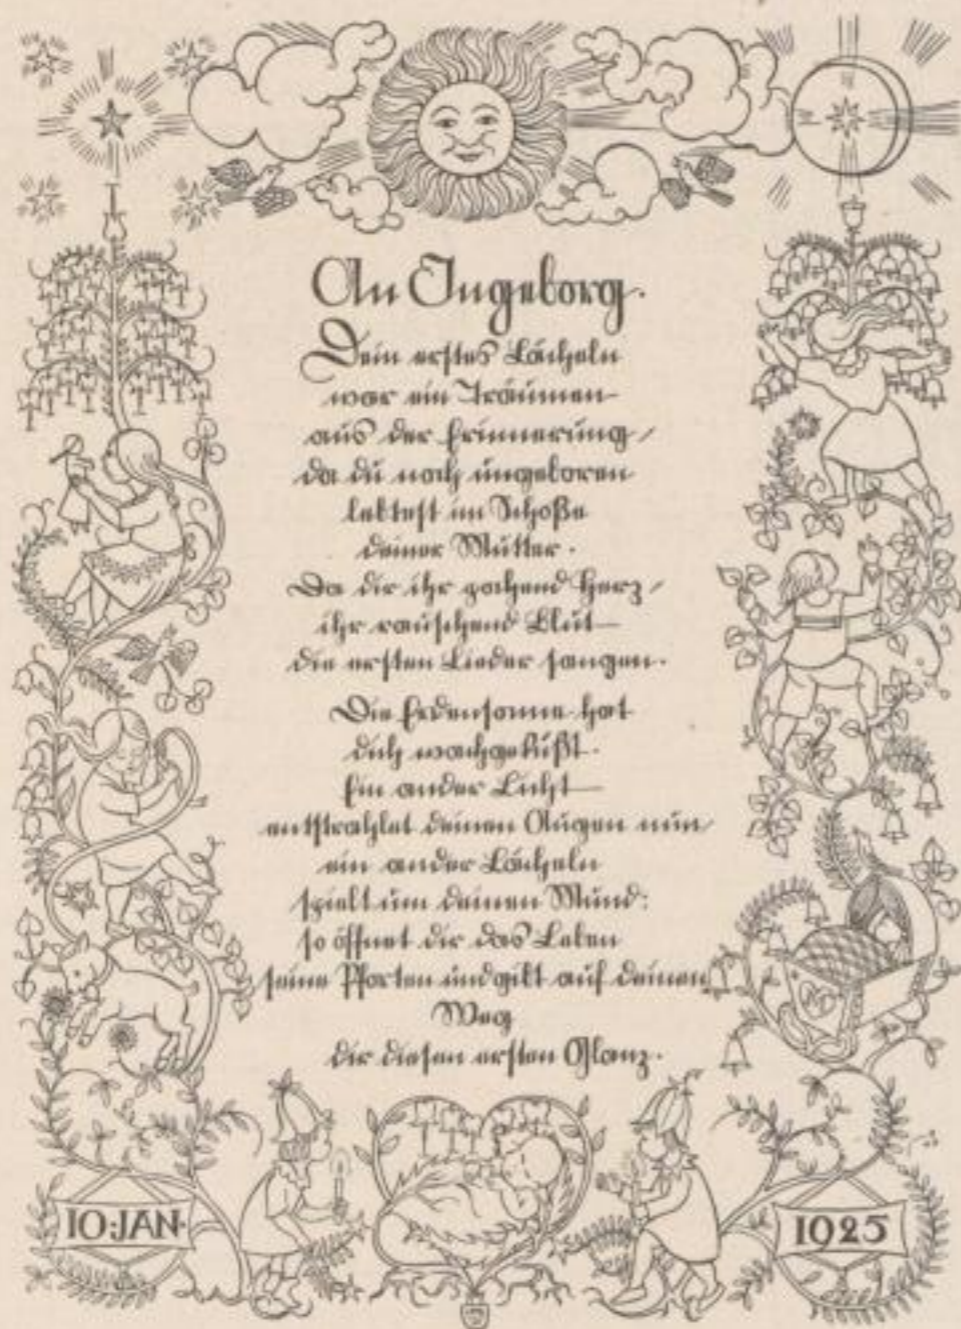 An Ingeborg.
Dein erstes Lächeln
war ein Träumen
aus der Erinnerung,
da du noch ungeboren
lebtest im Schoße
deiner Mutter.
Da dir ihr pochend Herz,
ihr rauschend Blut
die ersten Lieder sangen.
Die Erdensonne hat
dich wachgeküßt.
Ein ander Licht
entstrahlet deinen Augen nun,
ein ander Lächeln
spielt um deinen Mund:
so öffnet dir das Leben
seine Pforten und gibt auf deinen
Weg
dir diesen ersten Glanz.
10:JAN·
1925